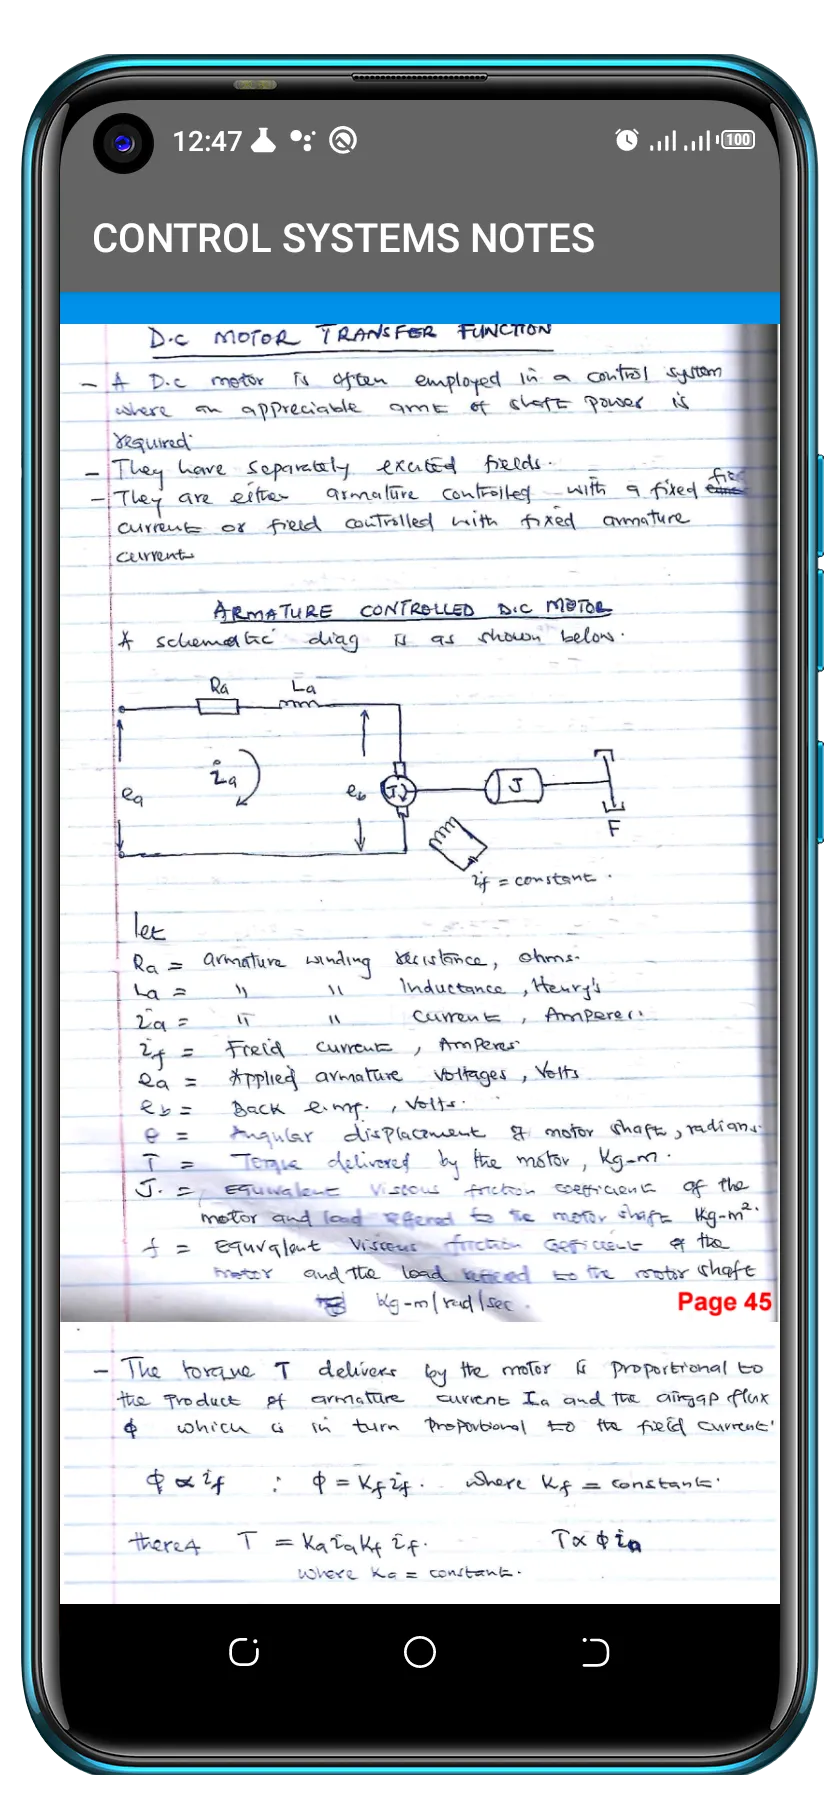 12:47
100
CONTROL SYSTEMS NOTES
D.C MOTOR TRANSFER FUNCTION
- A D.C motor is often employed in a control system
where an appreciable amt of shaft power is
required.
- They have separately excited fields.
- They are either armature controlled with a fixed field
current or field controlled with fixed armature
current
ARMATURE CONTROLLED D.C MOTOR
A schematic diag is as shown below.
Ra La
ia
ea
eb
T
J
F
if = constant.
let
Ra = armature winding resistance, ohms.
La = " " Inductance, Henry's
ia = " " Current, Amperes.
if = Field current, Amperes
ea = Applied armature voltages, Volts
eb = Back e.mf., Volts.
θ = Angular displacement of motor shaft, radians.
T = Torque delivered by the motor, Kg-m.
J. = Equivalent Viscous friction coefficient of the
motor and load reffered to the motor shaft Kg-m².
f = Equivalent Viscous friction Coefficient of the
motor and the load reffered to the motor shaft
Kg-m/rad/sec.
Page 45
- The torque T delivers by the motor is proportional to
the product of armature current Ia and the airgap flux
ϕ which is in turn proportional to the field current.
ϕ ∝ if : ϕ = Kf if. where Kf = constant.
there4 T = Ka ia Kf if. T ∝ ϕ ia
where Ka = constant.